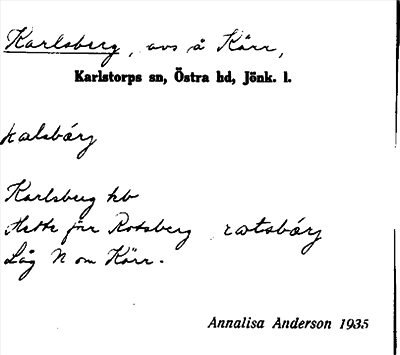 Karlsberg, avs å Kärr,
Karlstorps sn, Östra hd, Jönk. l.
kalsbárg
Karlsberg kb
Hette förr Rotsberg rotsbárg
Låg N om Kärr.
Annalisa Anderson 1935